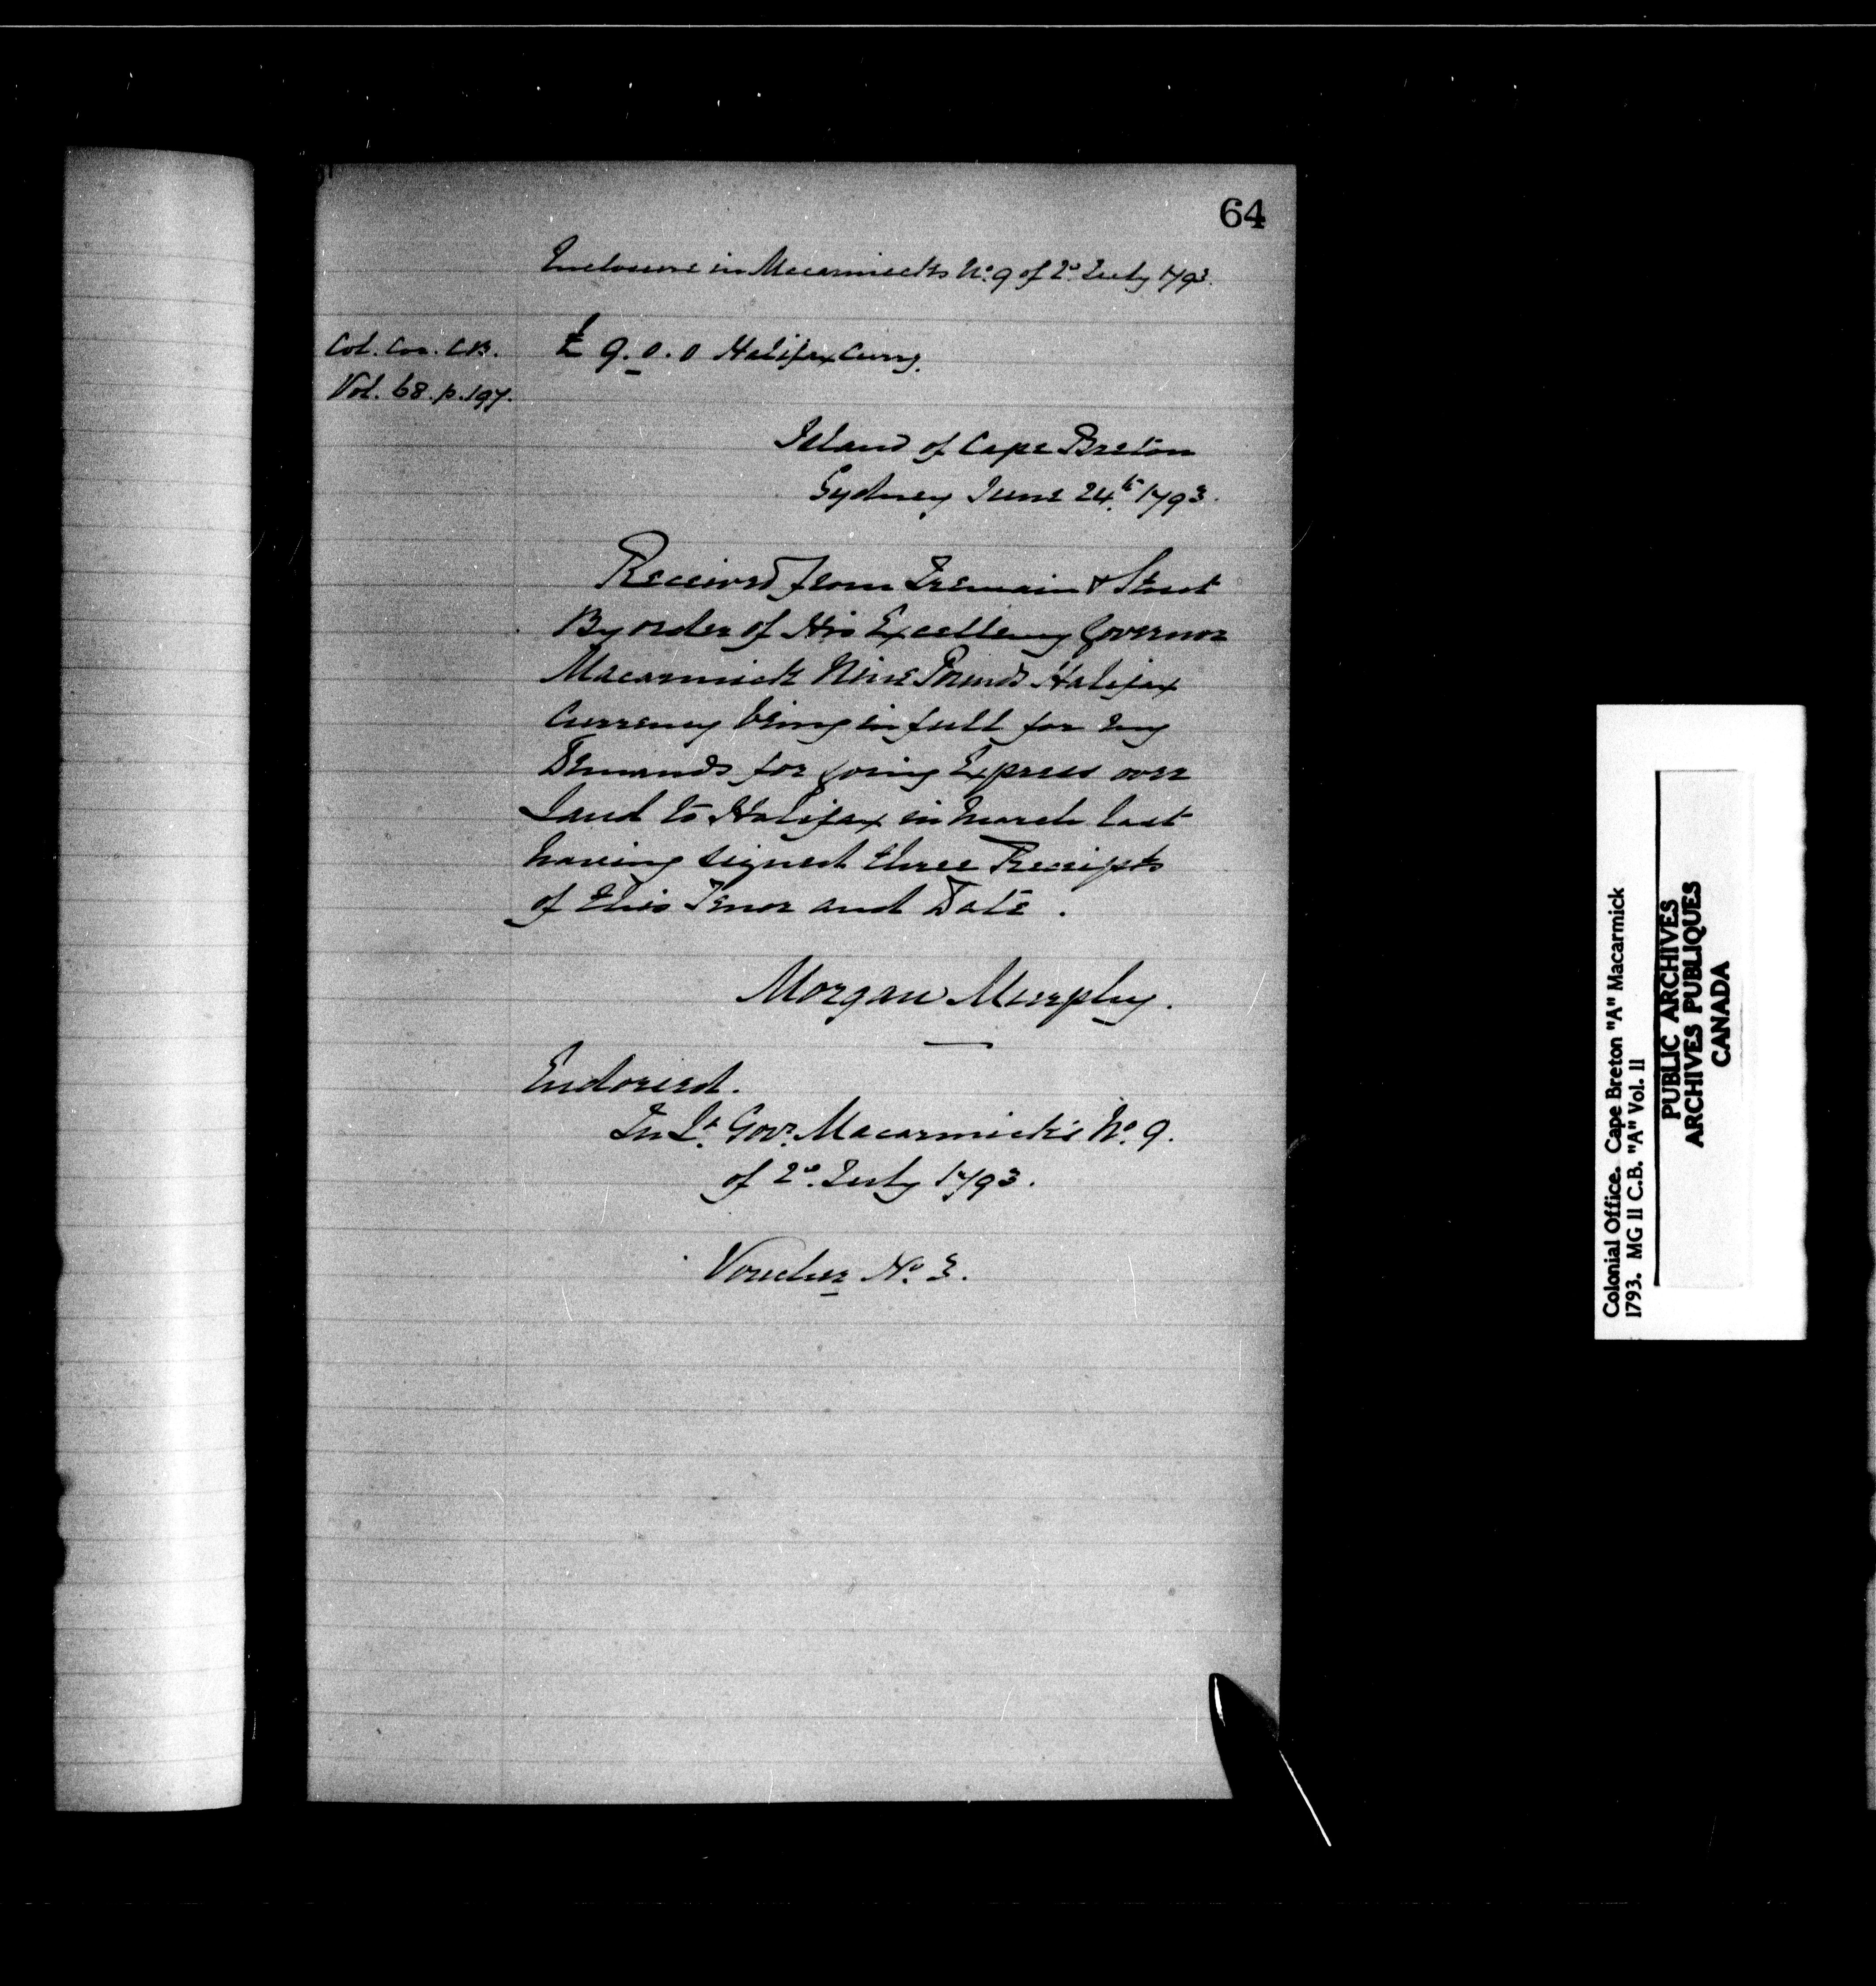 64
Enclosure in Macarmick's No. 9 of 2d July 1793.
Col. Cor. C.B.
Vol. 68. p. 197.
£ 9. 0. 0 Halifax Curry.
Island of Cape Breton
Sydney June 24th 1793.
Received from Tremain & Stout
By order of His Excellency Governor
Macarmick Nine Pounds Halifax
Currency being in full for my
Demands for going Express over
Land to Halifax in March last
having signed three Receipts
of this Tenor and Date.
Morgan Murphy.
Endorsed.
In Lt. Govr. Macarmick's No. 9.
of 2d. July 1793.
Voucher No. 3.
Colonial Office. Cape Breton "A" Macarmick
1793. MG 11 C.B. "A" Vol. 11
PUBLIC ARCHIVES
ARCHIVES PUBLIQUES
CANADA